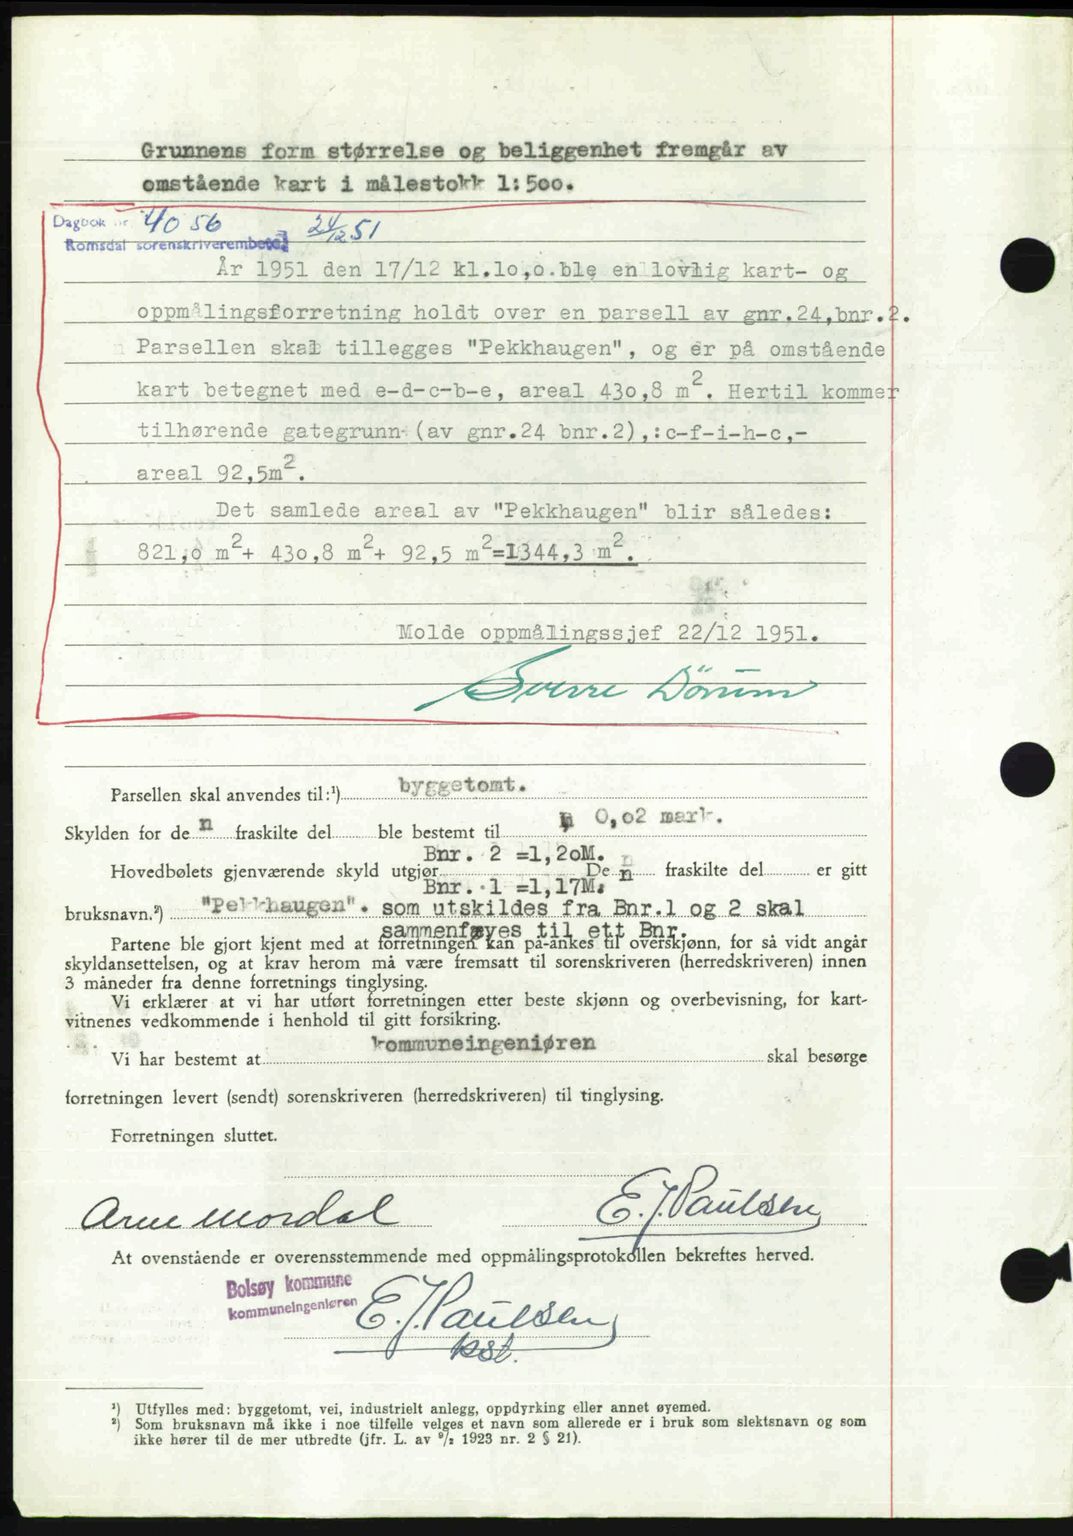 Grunnens form størrelse og beliggenhet fremgår av
omstående kart i målestokk 1:5oo.
Dagbok nr. 4056 24/12 51
Romsdal sorenskriverembete
År 1951 den 17/12 kl.1o,o.ble en lovlig kart- og
oppmålingsforretning holdt over en parsell av gnr.24,bnr.2.
Parsellen skal tillegges "Pekkhaugen", og er på omstående
kart betegnet med e-d-c-b-e, areal 43o,8 m2. Hertil kommer
tilhørende gategrunn (av gnr.24 bnr.2),:c-f-i-h-c,-
areal 92,5m2.
Det samlede areal av "Pekkhaugen" blir således:
821,o m2+ 43o,8 m2+ 92,5 m2=1344,3 m2.
Molde oppmålingssjef 22/12 1951.
Sverre Dörum
Parsellen skal anvendes til:¹) byggetomt.
Skylden for den fraskilte del ble bestemt til 0,o2 mark.
Bnr. 2 =1,2oM.
Hovedbølets gjenværende skyld utgjør Den fraskilte del er gitt
Bnr. 1 =1,17M.
bruksnavn.²) "Pekkhaugen". som utskildes fra Bnr.1 og 2 skal
sammenføyes til ett Bnr.
Partene ble gjort kjent med at forretningen kan på-ankes til overskjønn, for så vidt angår
skyldansettelsen, og at krav herom må være fremsatt til sorenskriveren (herredskriveren) innen
3 måneder fra denne forretnings tinglysing.
Vi erklærer at vi har utført forretningen etter beste skjønn og overbevisning, for kart-
vitnenes vedkommende i henhold til gitt forsikring.
Vi har bestemt at kommuneingeniøren skal besørge
forretningen levert (sendt) sorenskriveren (herredskriveren) til tinglysing.
Forretningen sluttet.
Arne Mordal E.J. Paulsen
At ovenstående er overensstemmende med oppmålingsprotokollen bekreftes herved.
Bolsøy kommune
kommuneingeniøren E.J. Paulsen
kst.
¹) Utfylles med: byggetomt, vei, industrielt anlegg, oppdyrking eller annet øyemed.
²) Som bruksnavn må ikke i noe tilfelle velges et navn som allerede er i bruk som slektsnavn og som
ikke hører til de mer utbredte (jfr. L. av ⁹/₂ 1923 nr. 2 § 21).